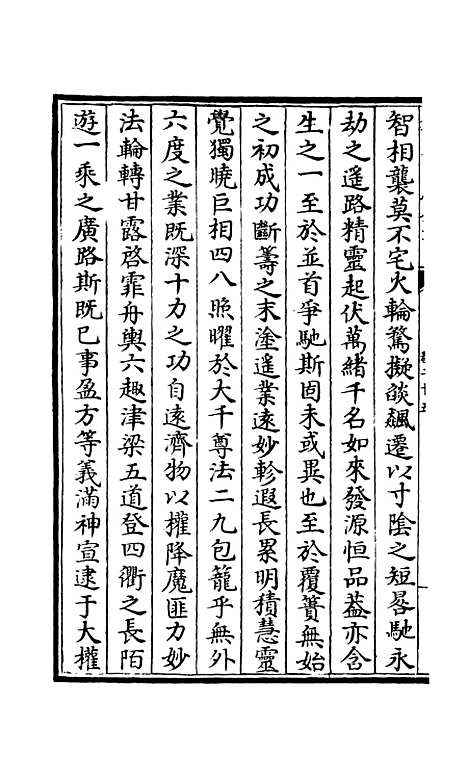 智相襲莫不宅火輪驚擬燄飆遷以寸陰之短晷馳永
劫之遥路精靈起伏萬緒千名如來發源恒品葢亦含
生之一至於並首爭馳斯固未或異也至於覆簣無始
之初成功斷籌之末塗遥業遠妙軫遐長累明積慧靈
覺獨曉巨相四八照曜於大千尊法二九包籠乎無外
六度之業既深十力之功自遠濟物以權降魔匪力妙
法輪轉甘露啓霏舟輿六趣津梁五道登四衢之長陌
遊一乘之廣路斯既已事盈方等義滿神宣逮于大權